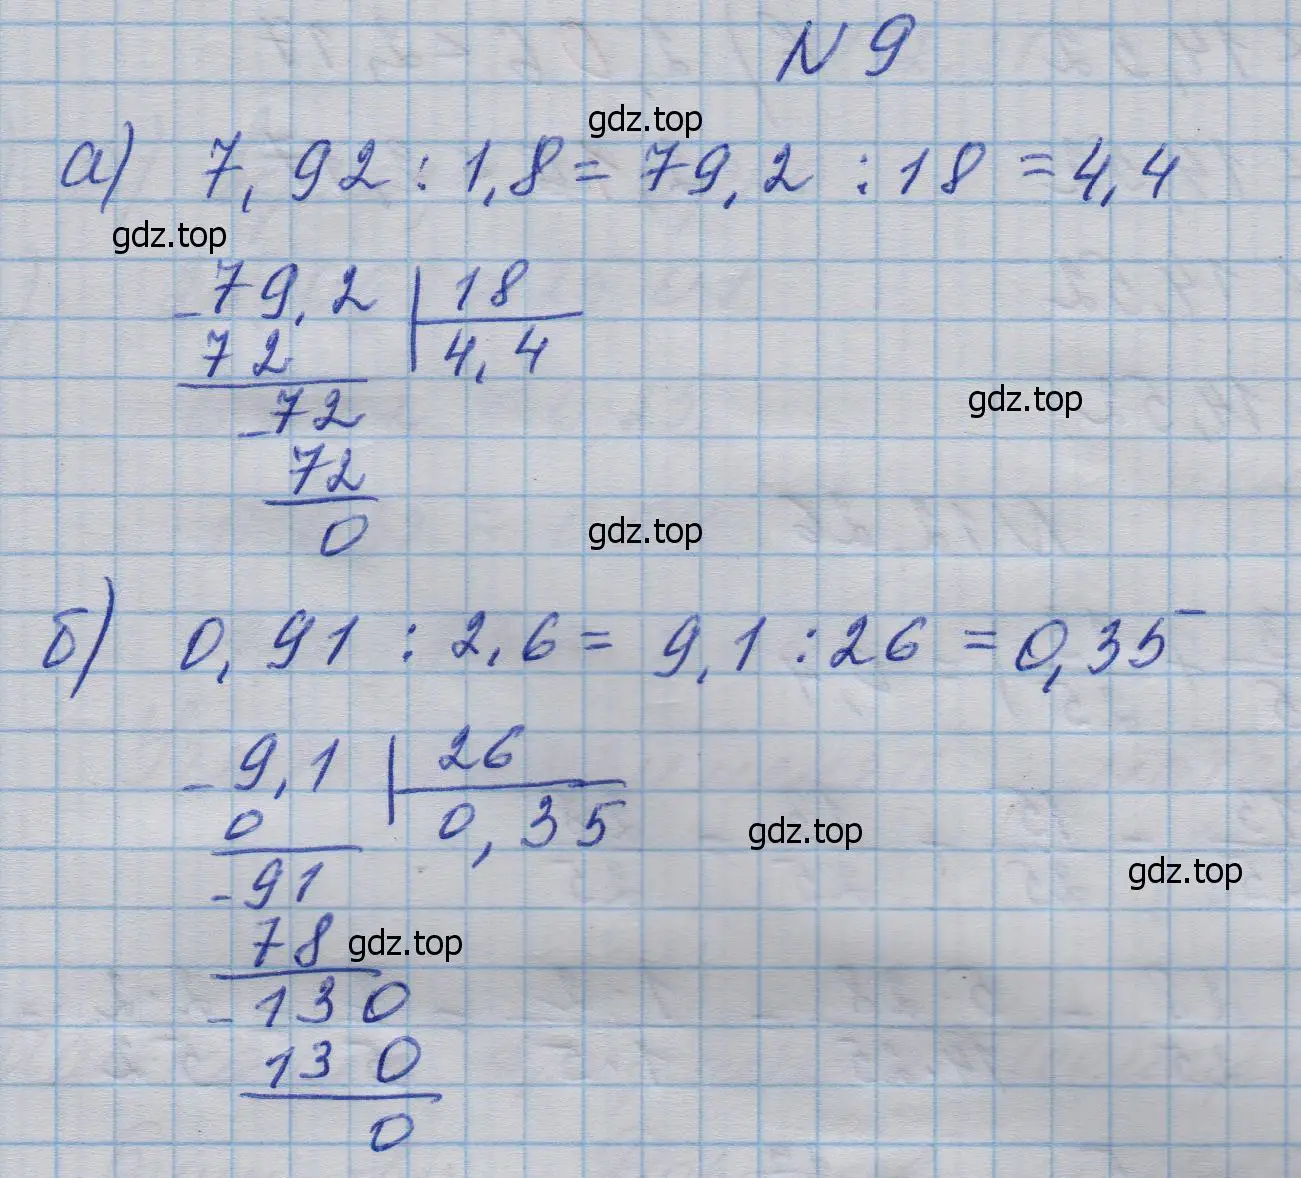 N 9
gdz.top
а) 7,92 : 1,8 = 79,2 : 18 = 4,4
gdz.top
- 79,2 | 18
72 | 4,4
gdz.top
- 72
72
gdz.top
0
б) 0,91 : 2,6 = 9,1 : 26 = 0,35
- 9,1 | 26
0 | 0,35
gdz.top
gdz.top
- 91
78
gdz.top
- 130
130
0